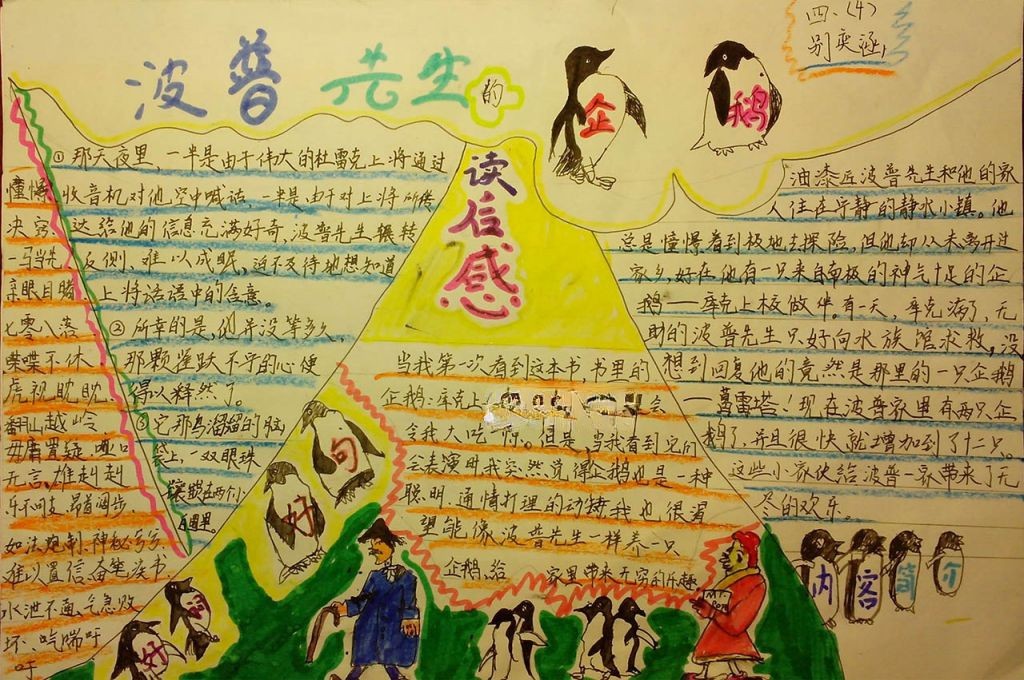 四、(4)
别奕涵
波普先生的
企鹅
读后感
①那天夜里,一半是由于伟大的杜雷克上将通过
收音机对他空中喊话,一半是由于对上将所做
这给他的信息充满好奇,波普先生辗转
反侧、难以成眠,迫不及待地想知道
上将话语中的含意。
②所幸的是,他并没等多久,
那颗雀跃不宁的心便
得以释然了。
③它那乌溜溜的脑
袋上,一双眼珠
镶嵌在两个小
白圈里。
憧憬
决窍
一马当先
亲眼目睹
七零八落
喋喋不休
虎视眈眈
翻山越岭
毋庸置疑 哑口
无言、雄赳赳
乐不可支、昂首阔步、
如法炮制、神秘兮兮
难以置信、奋笔疾书
水泄不通、气急败
坏、气喘吁
吁
好词
好句
当我第一次看到这本书,书里的
企鹅:库克上
会
令我大吃一惊。但是,当我看到它们
会表演时我突然觉得企鹅也是一种
聪明、通情打理的动物我也很渴
望能像波普先生一样养一只
企鹅、给家里带来无穷的乐趣
油漆匠波普先生和他的家
人住在宁静的静水小镇。他
总是憧憬着到极地去探险,但他却从未离开过
家乡,好在他有一只来自南极的神气十足的企
鹅——库克上校做伴。有一天,库克病了,无
助的波普先生只好向水族馆求救,没
想到回复他的竟然是那里的一只企鹅
——葛雷塔!现在波普家里有两只企
鹅了,并且很快就增加到了十二只。
这些小家伙给波普一家带来了无
尽的欢乐。
内容简介